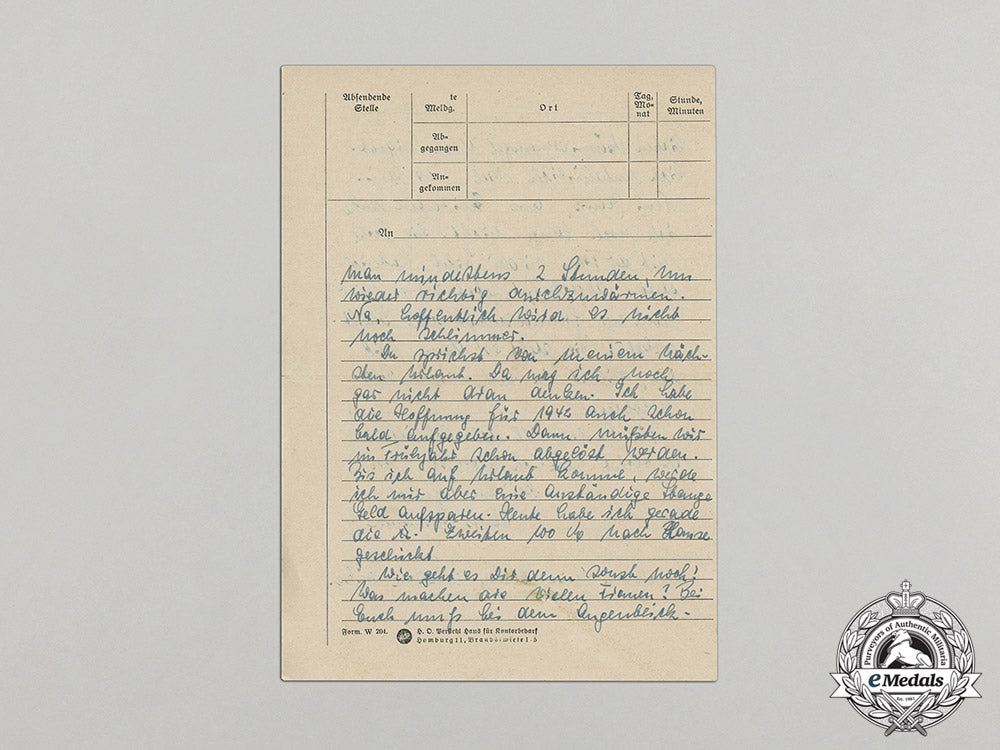 Absendende
Stelle
te
Meldg.
Ort
Tag,
Mo-
nat
Stunde,
Minuten
Ab-
gegangen
An-
gekommen
An
man mindestens 2 Stunden um
wieder richtig durchzuwärmen.
Na, hoffentlich wird es nicht
noch schlimmer.
Du sprichst von meinem näch-
sten Urlaub. Da mag ich noch
gar nicht dran denken. Ich habe
die Hoffnung für 1942 auch schon
bald aufgegeben. Dann müßten wir
im Frühjahr schon abgelöst werden.
Bis ich auf Urlaub komme, werde
ich mir aber eine anständige Stange
Geld aufsparen. Heute habe ich gerade
die zweiten 100 nach Hause
geschickt
Wie geht es Dir denn sonst noch?
Was machen die vielen Firmen? Bei
Euch muß bei dem Augenblick-
Form. W 204.
H. O. Persiehl Haus für Kontorbedarf
Hamburg 11, Brandstwiete 1-5
Purveyors of Authentic Militaria
eMedals